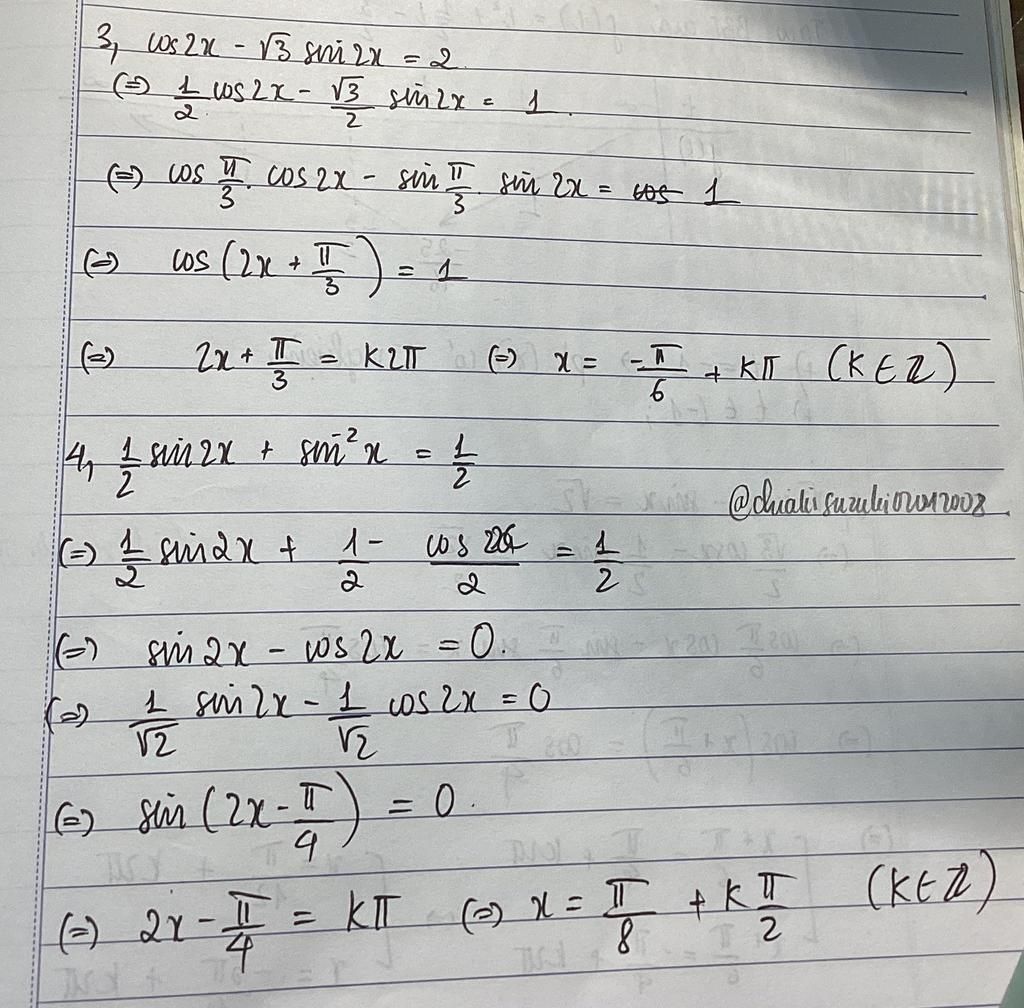 3, cos2x - √3 sin2x = 2
(=) 1/2 cos2x - √3/2 sin2x = 1.
(=) cos π/3 . cos2x - sin π/3 . sin 2x = cos 1
(=) cos (2x + π/3) = 1
(=) 2x + π/3 = k2π (=) x = -π/6 + kπ (k ∈ Z)
4, 1/2 sin2x + sin²x = 1/2
@chiakisuzuki02012008
(=) 1/2 sin2x + 1/2 - cos 2x/2 = 1/2
(=) sin2x - cos2x = 0.
(=) 1/√2 sin2x - 1/√2 cos2x = 0
(=) sin (2x - π/4) = 0.
(=) 2x - π/4 = kπ (=) x = π/8 + k π/2 (k ∈ Z)